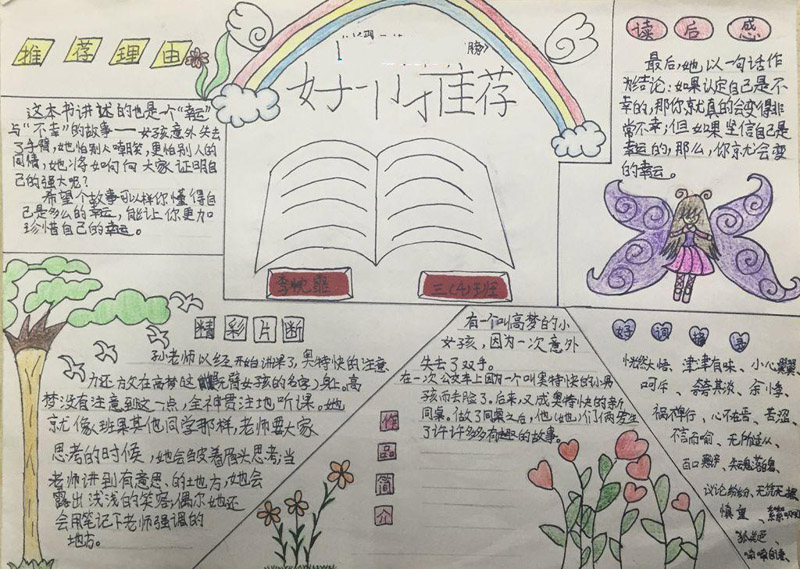 推荐理由
好书推荐
读后感
这本书讲述的也是一个“幸运”
与“不幸”的故事——女孩意外失去
了手臂，她怕别人嘲笑，更怕别人的
同情，她将如何向大家证明自
己的强大呢？
希望个故事可以样你懂得自
己是多么的幸运，能让你更加
珍惜自己的幸运。
最后，她以一句话作
为结论：如果认定自己是不
幸的，那你就真的会变得非
常不幸；但如果坚信自己是
幸运的，那么，你就会变
的幸运。
三(4)班
精彩片断
孙老师以经开始讲课了，奥特快的注意
力还方欠在高梦这
无臂女孩的名字)身上。高
梦没有注意到这一点，全神贯注地听课。她
就像班果其他同学那样，老师要大家
思考的时候，她会皱着眉头思考；当
老师讲到有意思的地方，她会
露出浅浅的笑容；偶尔她还
会用笔记下老师强调的
地方。
作品简介
有一个叫高梦的小
女孩，因为一次意外
失去了双手。
在一次公交车上因为一个叫奥特快的小男
孩而失去了。后来，又成奥特快的新
同桌。做了同桌之后，他(她)们俩发生
了许许多多有趣的故事。
好词摘
恍然大悟、津津有味、小心翼翼
呵斥、夸夸其谈、余小李、
祸不单行、心不在焉、苦涩、
不言而喻、无所适从、
议论纷纷、
慎重、